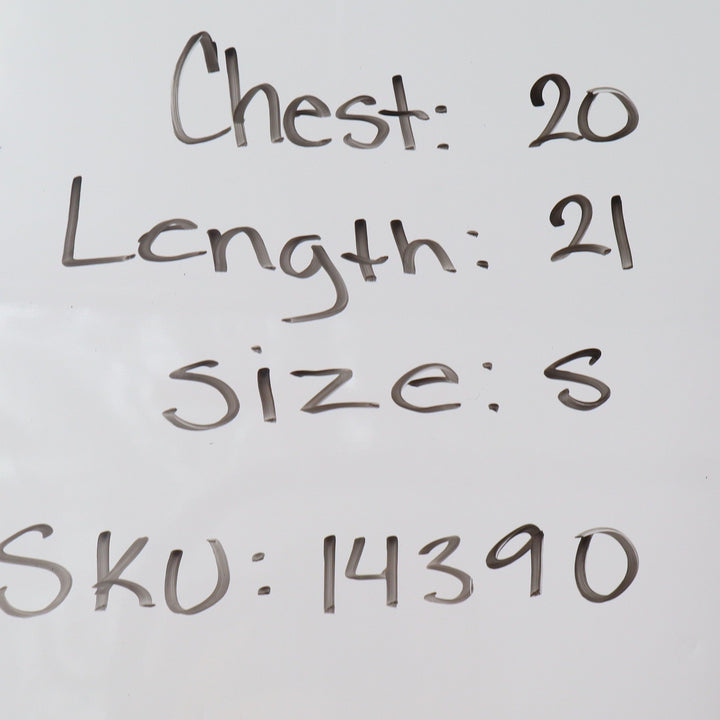 Chest: 20
Length: 21
Size: S
SKU: 14390